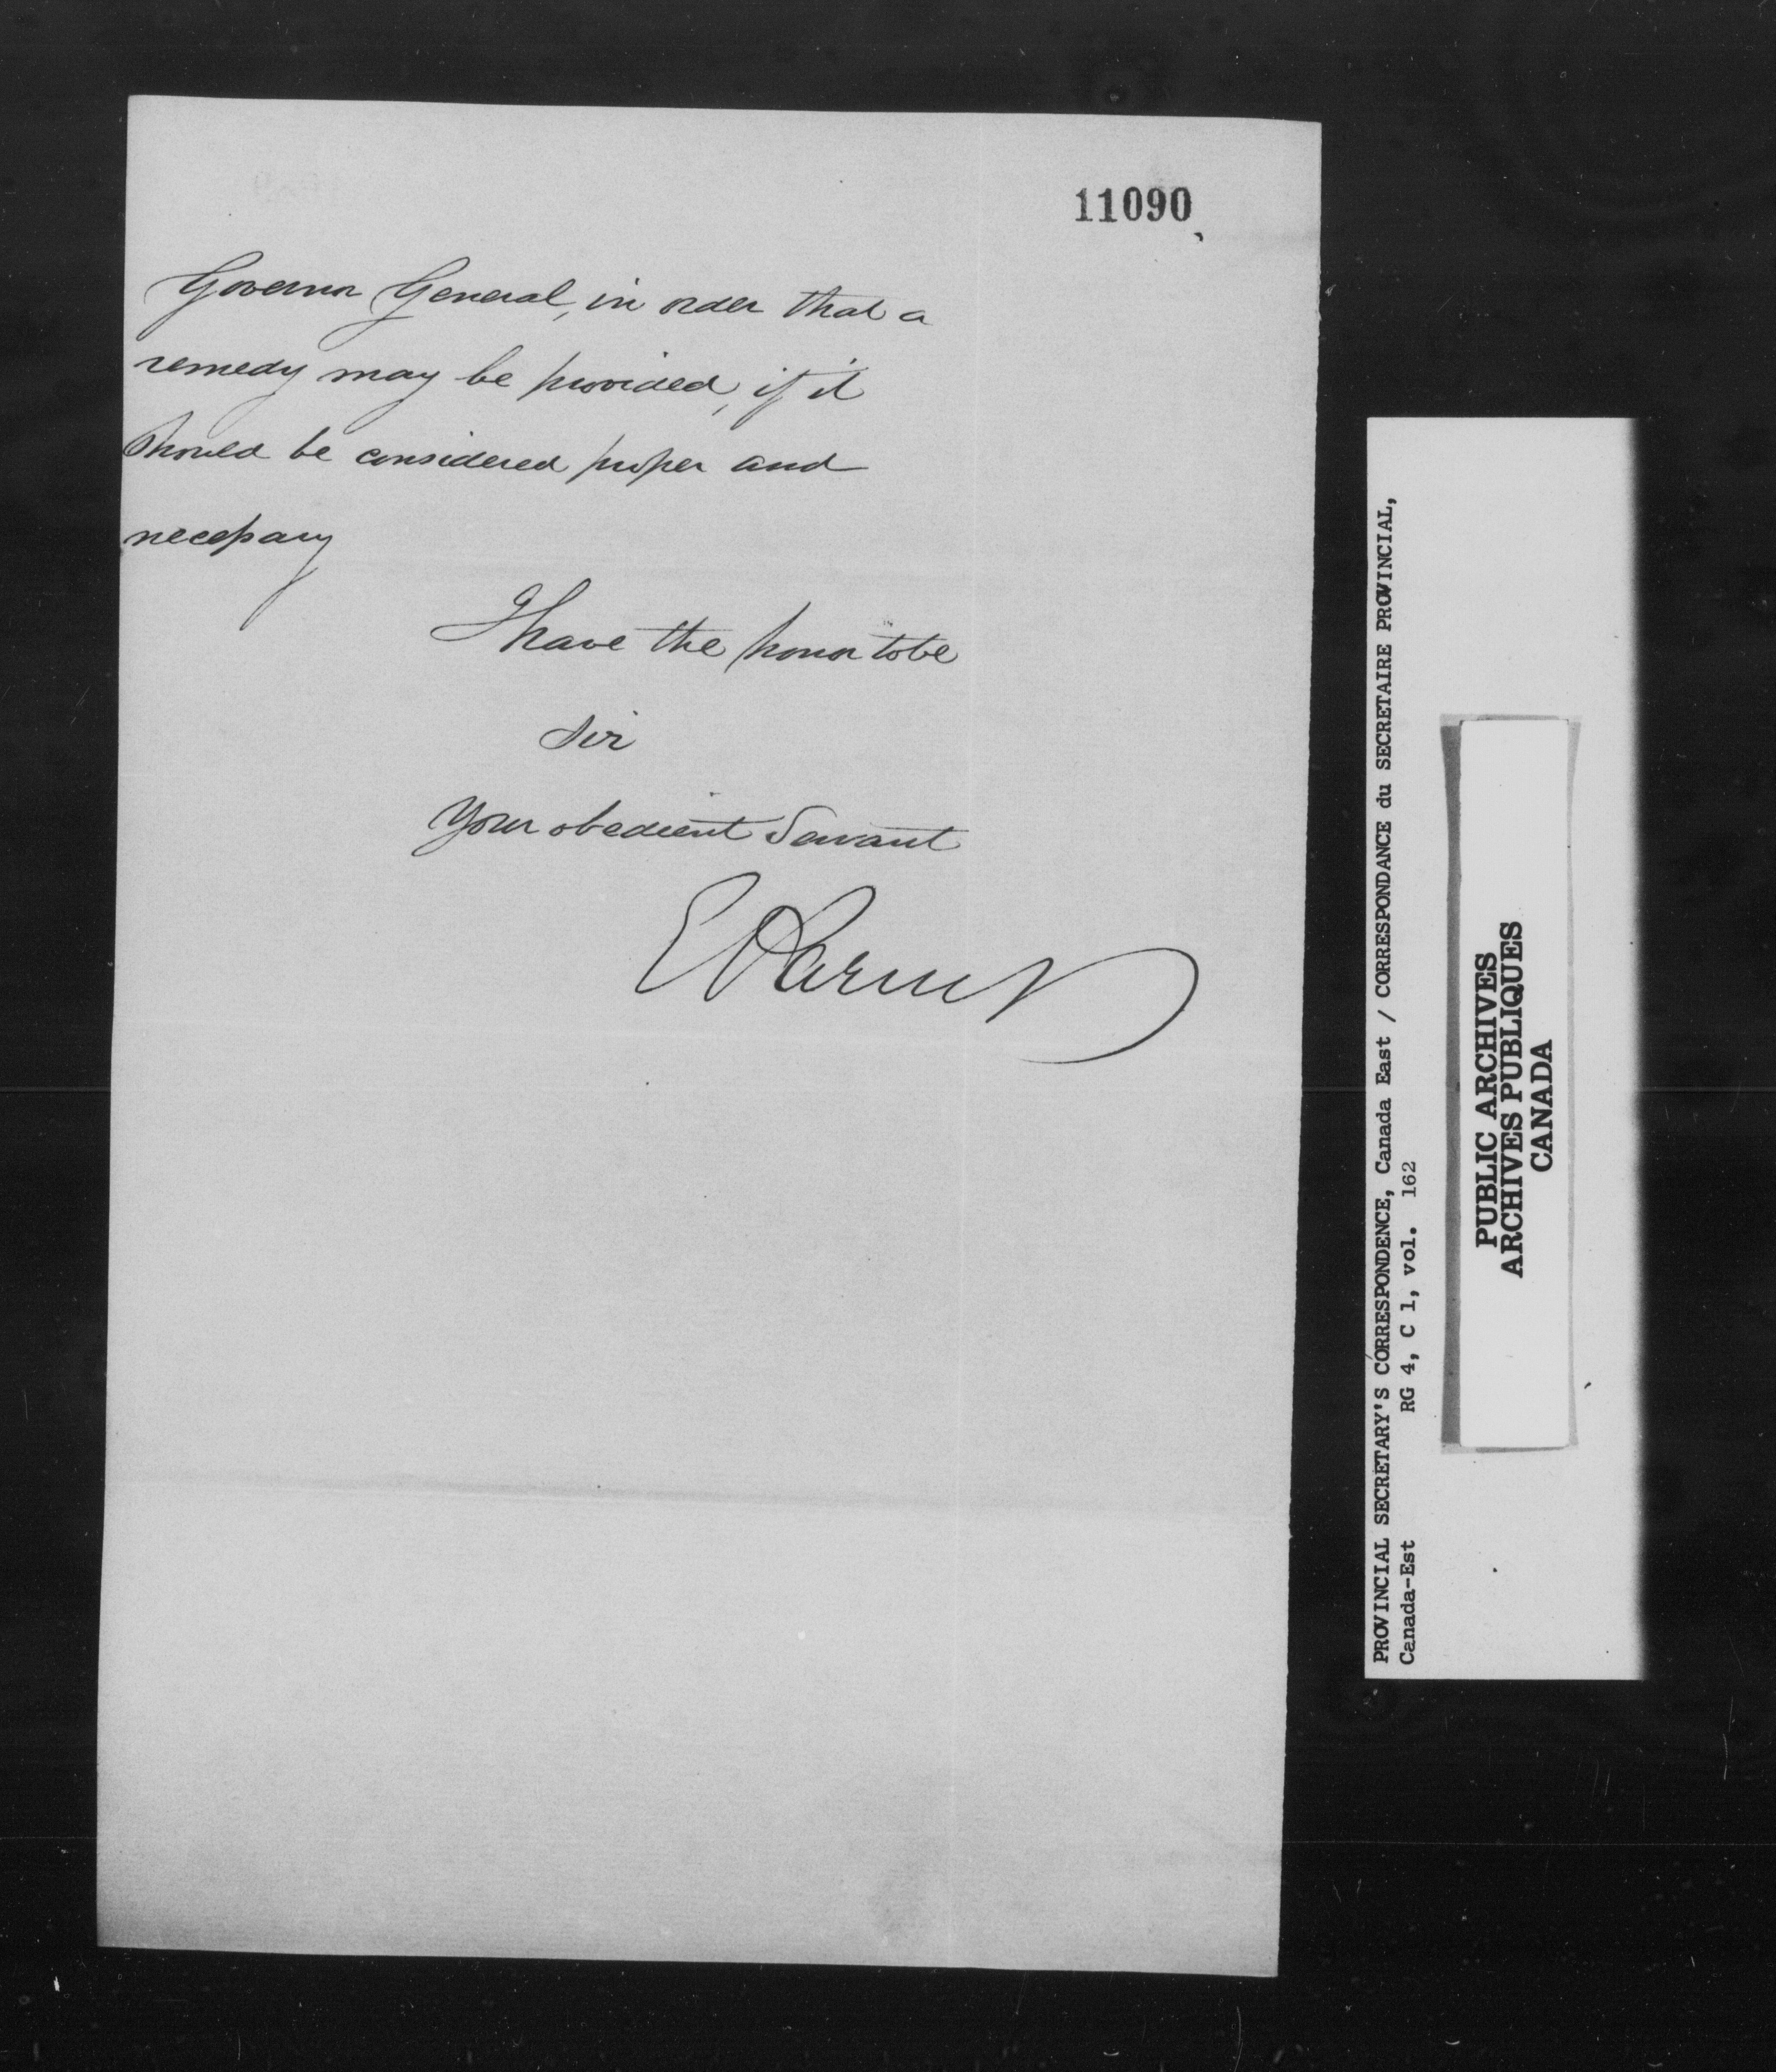 11090
Governor General, in order that a
remedy may be provided, if it
should be considered proper and
necessary
I have the honor to be
Sir
Your obedient Servant
PROVINCIAL SECRETARY'S CORRESPONDENCE, Canada East / CORRESPONDANCE du SECRETAIRE PROVINCIAL,
Canada-Est RG 4, C 1, vol. 162
PUBLIC ARCHIVES
ARCHIVES PUBLIQUES
CANADA